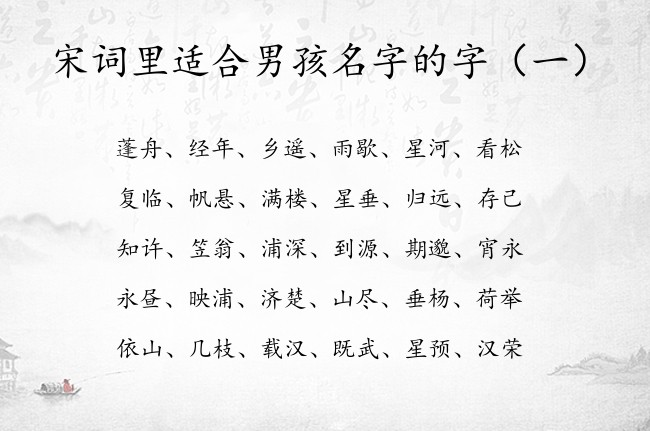 宋词里适合男孩名字的字（一）
蓬舟、经年、乡遥、雨歇、星河、看松
复临、帆悬、满楼、星垂、归远、存己
知许、笠翁、浦深、到源、期邈、宵永
永昼、映浦、济楚、山尽、垂杨、荷举
依山、几枝、载汉、既武、星预、汉荣